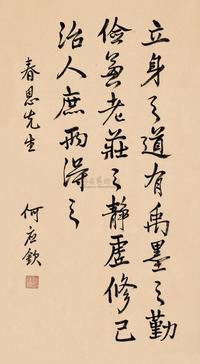 立身之道有禹墨之勤
儉兼老莊之靜虛修己
治人庶兩得之
春恩先生
何應欽